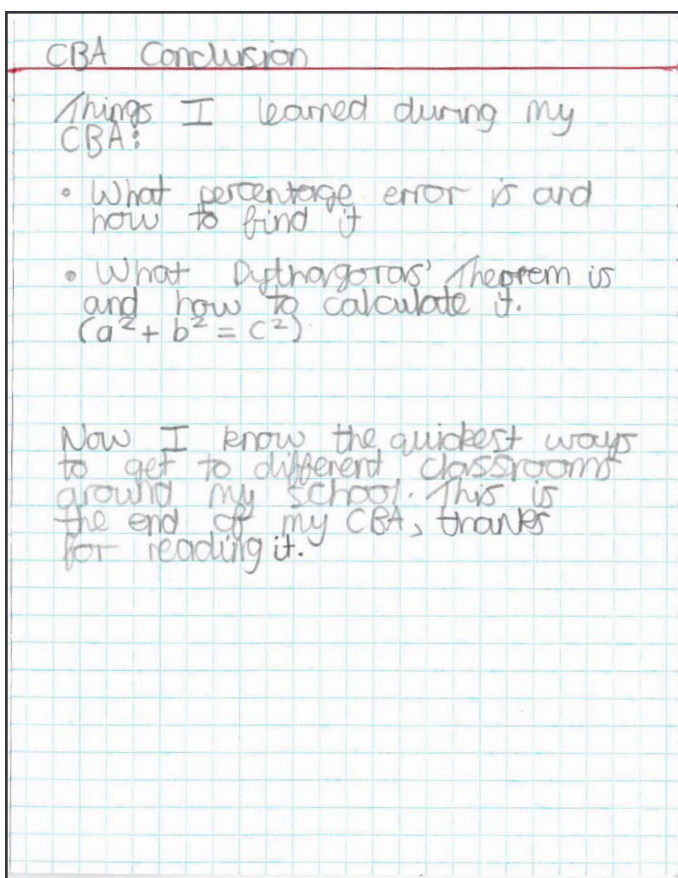 CBA Conclusion
Things I learned during my
CBA:
• What percentage error is and
how to find it
• What Pythagoras' Theorem is
and how to calculate it.
(a² + b² = c²)
Now I know the quickest ways
to get to different classrooms
around my school. This is
the end of my CBA, thanks
for reading it.